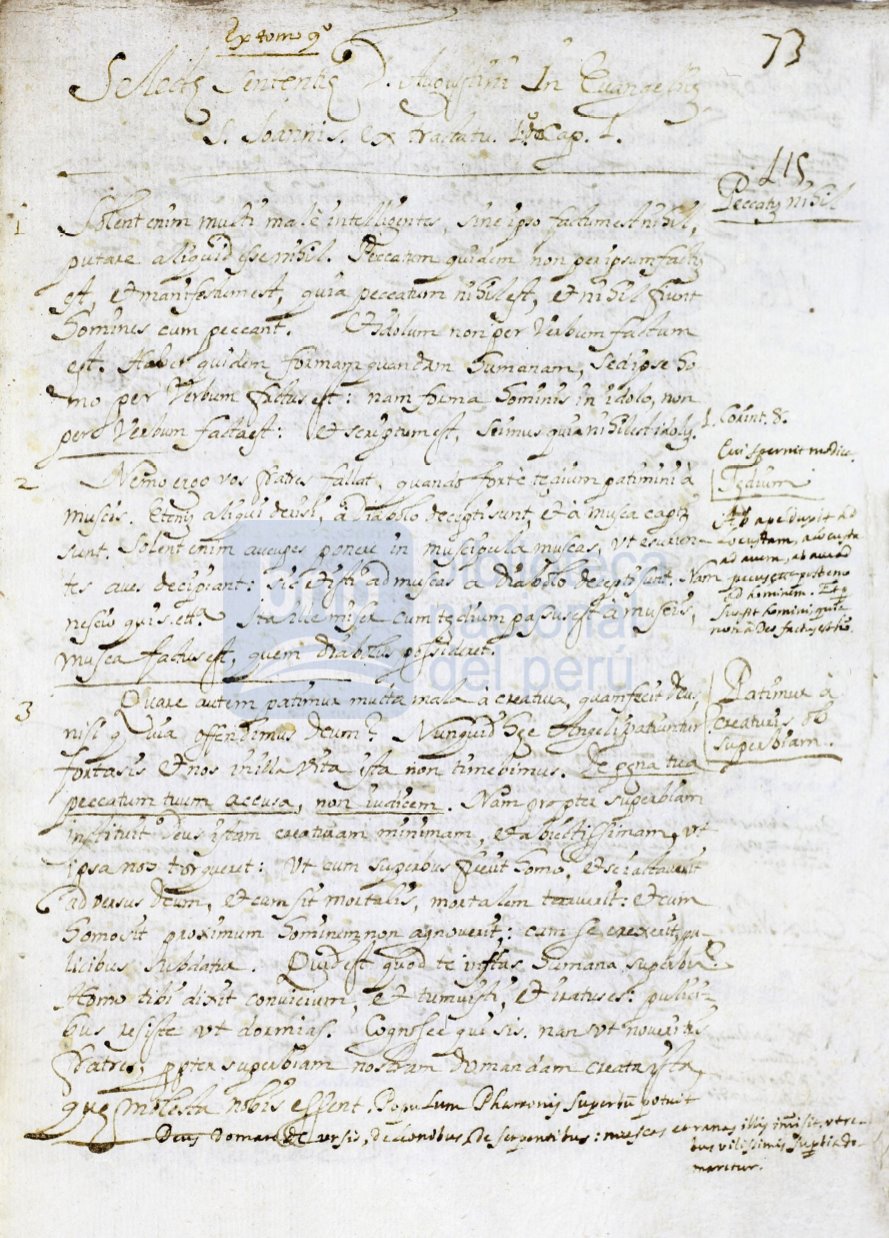 Ex tomo 9º
73
Selectę Sententię D. Augustini In Euangeliū
S. Joannis. ex tractatu. Cap. 1.
115
Peccatū nihil
1 Solent enim multi malè intelligentes, sine ipso factum est nihil,
putare aliquid esse nihil. Peccatum quidem non per ipsum factū
est, et manifestum est, quia peccatum nihil est, et nihil fiunt
homines cum peccant. Et idolum non per Verbum factum
est. Habet quidem formam quandam humanam, sed ipse ho-
mo per Verbum factus est: nam forma hominis in idolo, non
per Verbum facta est: et scriptum est, scimus quia nihil est idolū.
1. Corint. 8.
2 Nemo ergo vos fratres fallat, quando fortè tędium patimini à
muscis. Etenim aliqui derisi, à Diabolo decepti sunt, et à musca capti
sunt. Solent enim aucupes ponere in muscipula muscas, vt esurien-
tes aues decipiant: sic et isti ad muscas à Diabolo decepti sunt. Nam
nescio quis. etc. Ita ille miser cum tędium passus est à muscis,
musca factus est, quem diabolus possideret.
Tędium
Ab ape duxit ad
locustam, a locusta
ad auem, ab aue ad
pecus
ad hominem. Et
3 Quare autem patimur multa mala à creatura, quam fecit Deus,
nisi quia offendimus Deum? Nunquid hęc Angeli patiuntur
fortasis et nos in illa vita ista non timebimus. De pęna tua
peccatum tuum accusa, non iudicem. Nam propter superbiam
instituit Deus istam creaturam minimam, et abiectissimam, vt
ipsa nos torqueret: Vt cum superbus fuerit homo, et se iactauerit
aduersus Deum, et cum sit mortalis, mortalem terruerit: et cum
homo sit proximum hominem non agnouerit: cum se erexerit, pu-
licibus subdatur. Quid est quod te inflas humana superbia?
Homo tibi dixit conuicium, et tumuisti, et iratus es: pulici-
bus resiste vt dormias. Cognosce qui sis. nam vt noueritis
fratres, propter superbiam nostram domandam creata ista,
quę molesta nobis essent. Populum Pharaonis superbū potuit
Deus domare de vrsis, de leonibus, de serpentibus: muscas et ranas illis immisit, vt re-
bus vilissimis supbia do-
maretur.
Patimur à
creaturis ob
superbiam.